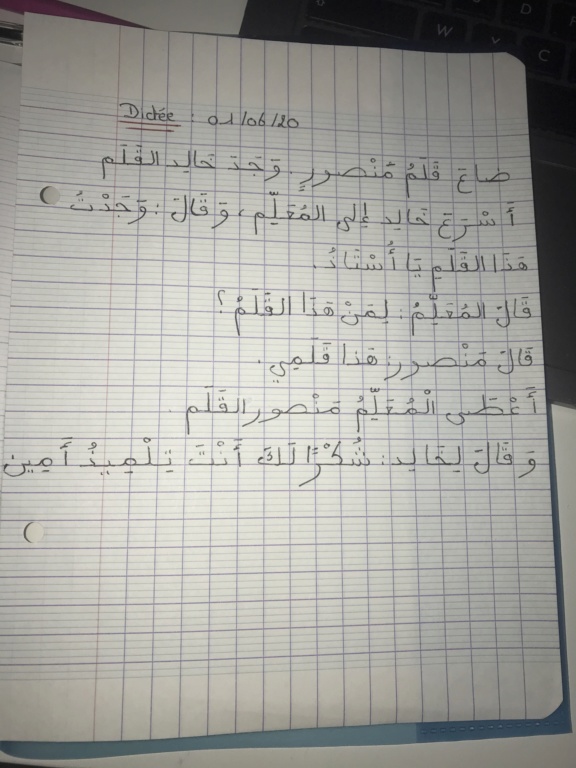 Dictée : 01/06/20
ضاعَ قَلَمُ مَنْصورٍ. وَجَدَ خَالِد القَلَم
أَسْرَعَ خَالِد إِلى المُعَلِّمِ، وَقَالَ : وَجَدْتُ
هَذَا القَلَم يَا أُسْتَاذُ.
قَالَ المُعَلِّمُ : لِمَنْ هَذَا القَلَمُ ؟
قَالَ مَنْصور : هَذا قَلَمِي.
أَعْطَى الْمُعَلِّمُ مَنْصور القَلَم.
وَقَالَ لِخَالِد : شُكْرًا لَكَ أَنْتَ تِلْمِيذٌ أَمِين